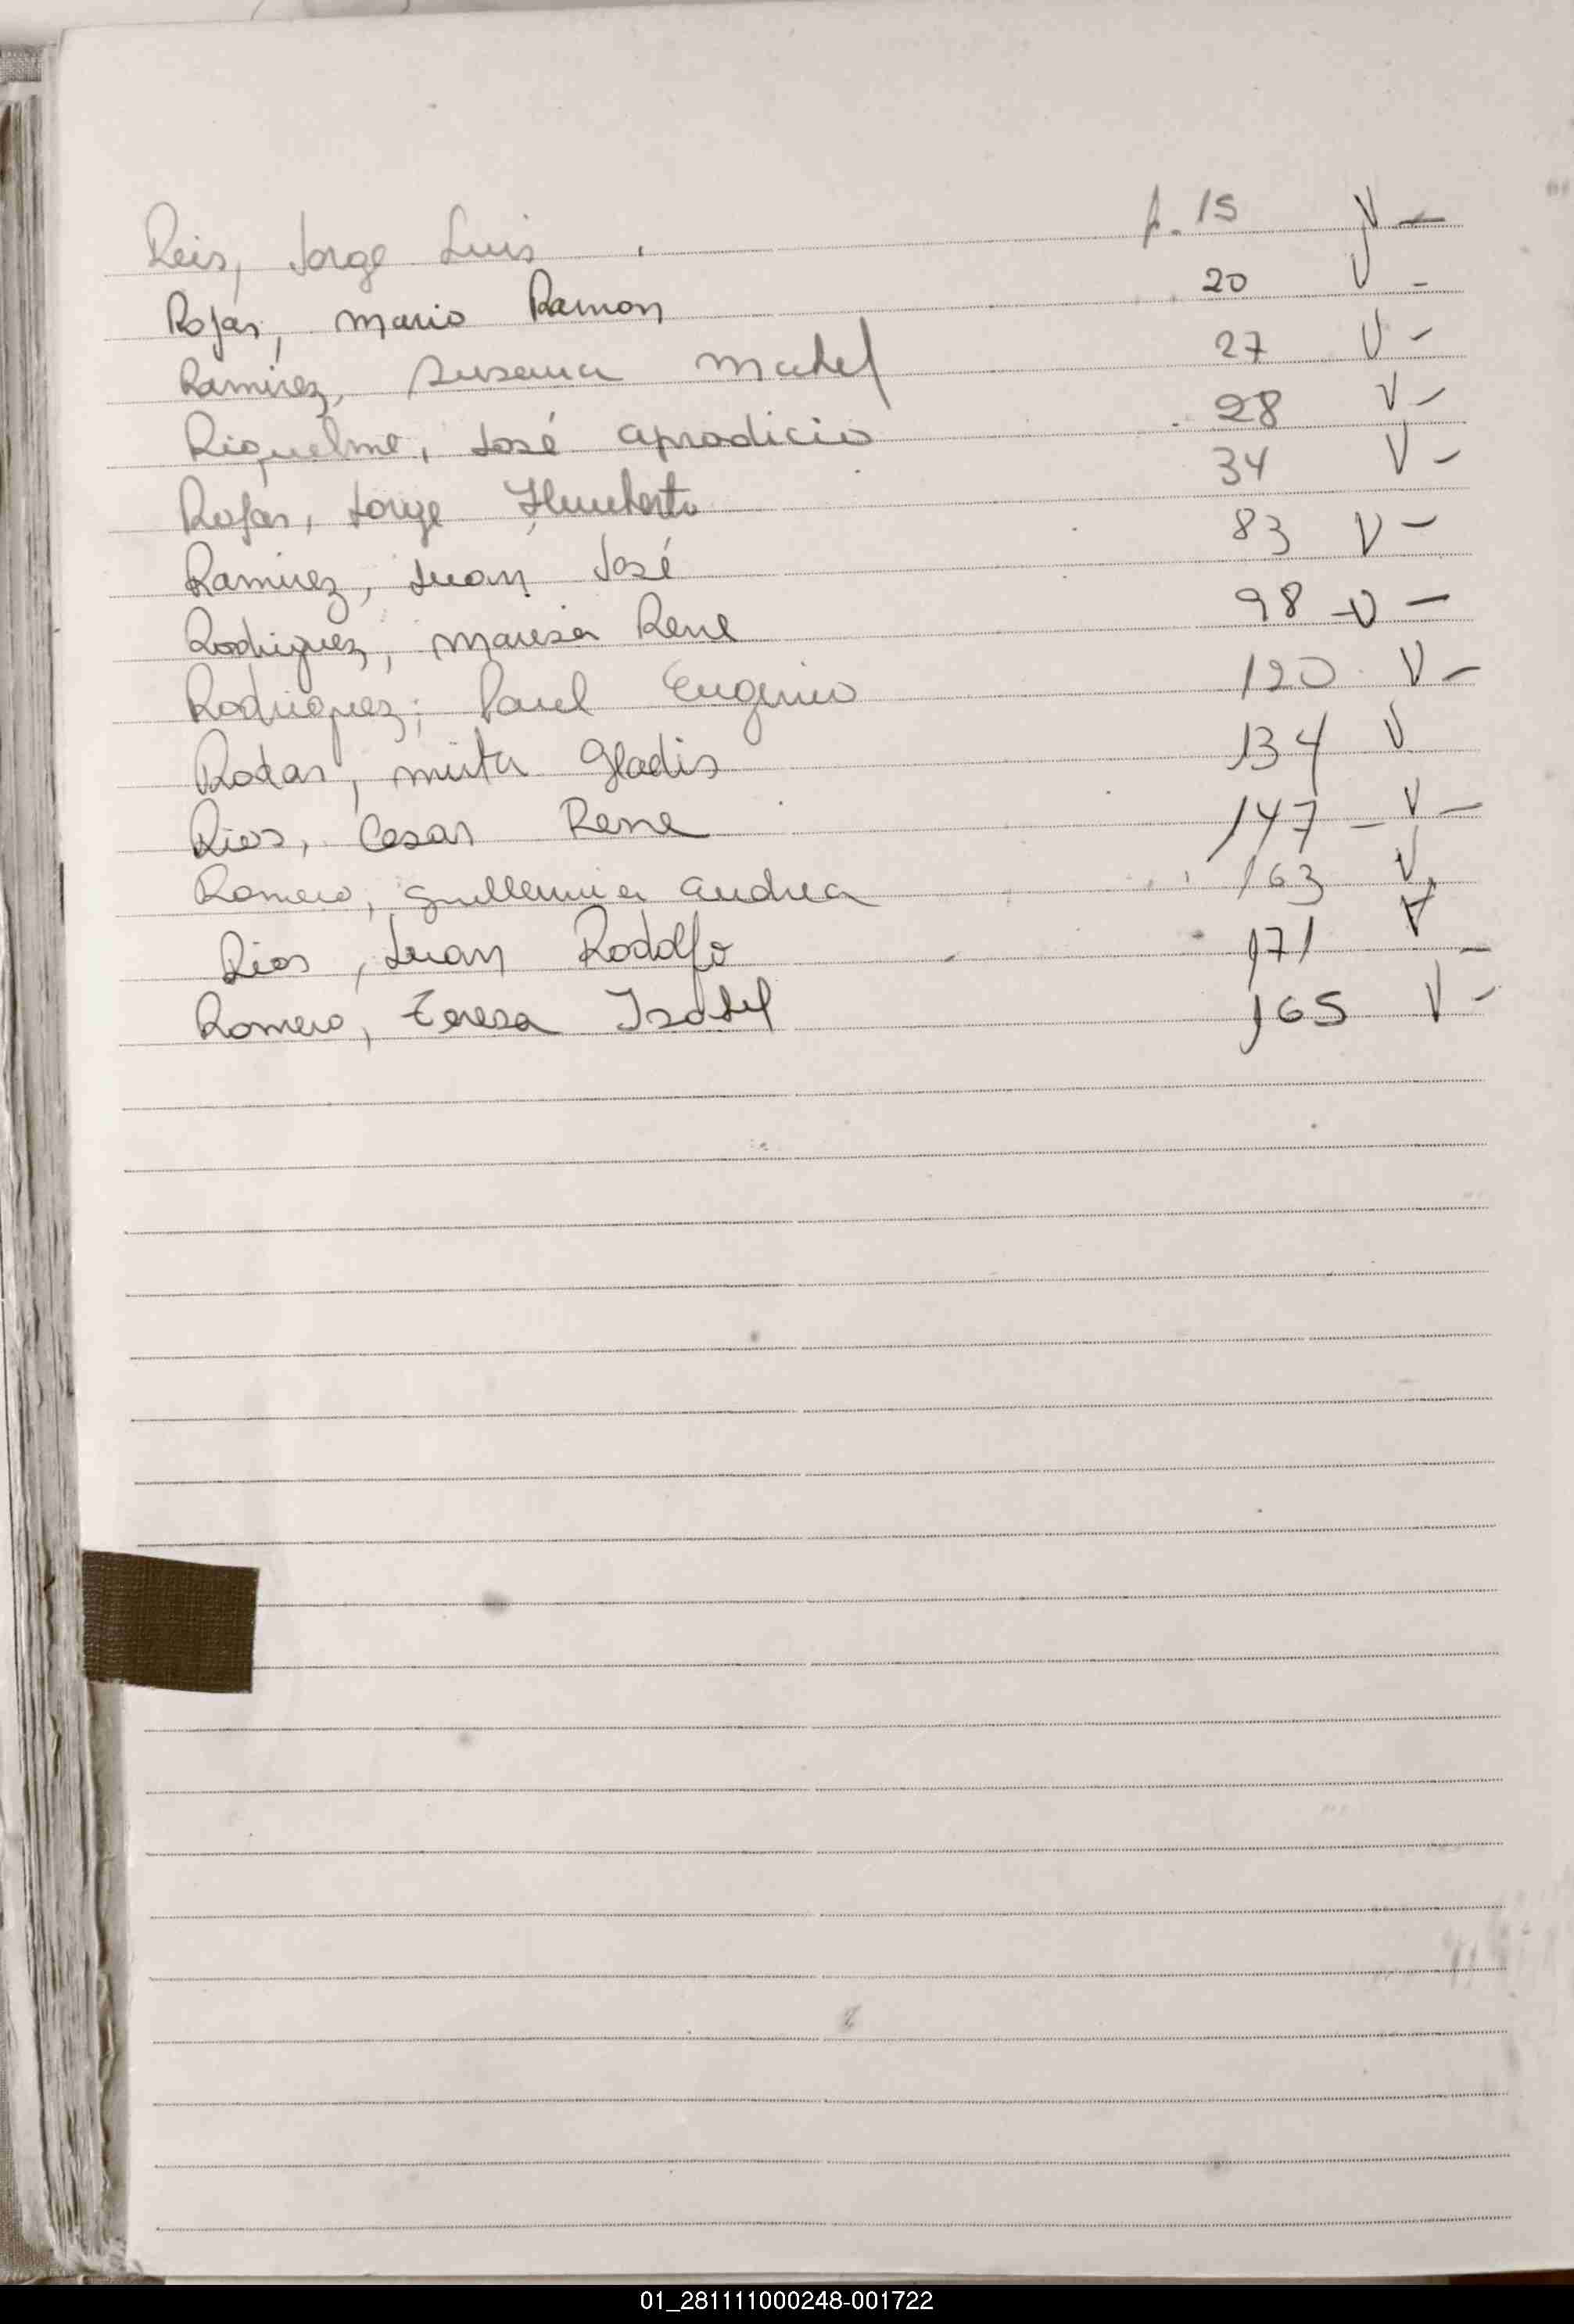 Reis, Jorge Luis p. 15 V -
Rojas, Mario Ramon 20 V -
Ramirez, Susana Mabel 27 V -
Riquelme, José Aprodicio 28 V -
Rojas, Jorge Humberto 34 V -
Ramirez, Juan José 83 V -
Rodriguez, Marisa Rene 98 - V -
Rodriguez, Raul Eugenio 120 V -
Rodas, Mirta Gladis 134 V
Rios, Cesar Rene 147 - V -
Romero, Guillermina Andrea 163 V
Rios, Juan Rodolfo 171 -
Romero, Teresa Isabel 165 V -
01_281111000248-001722